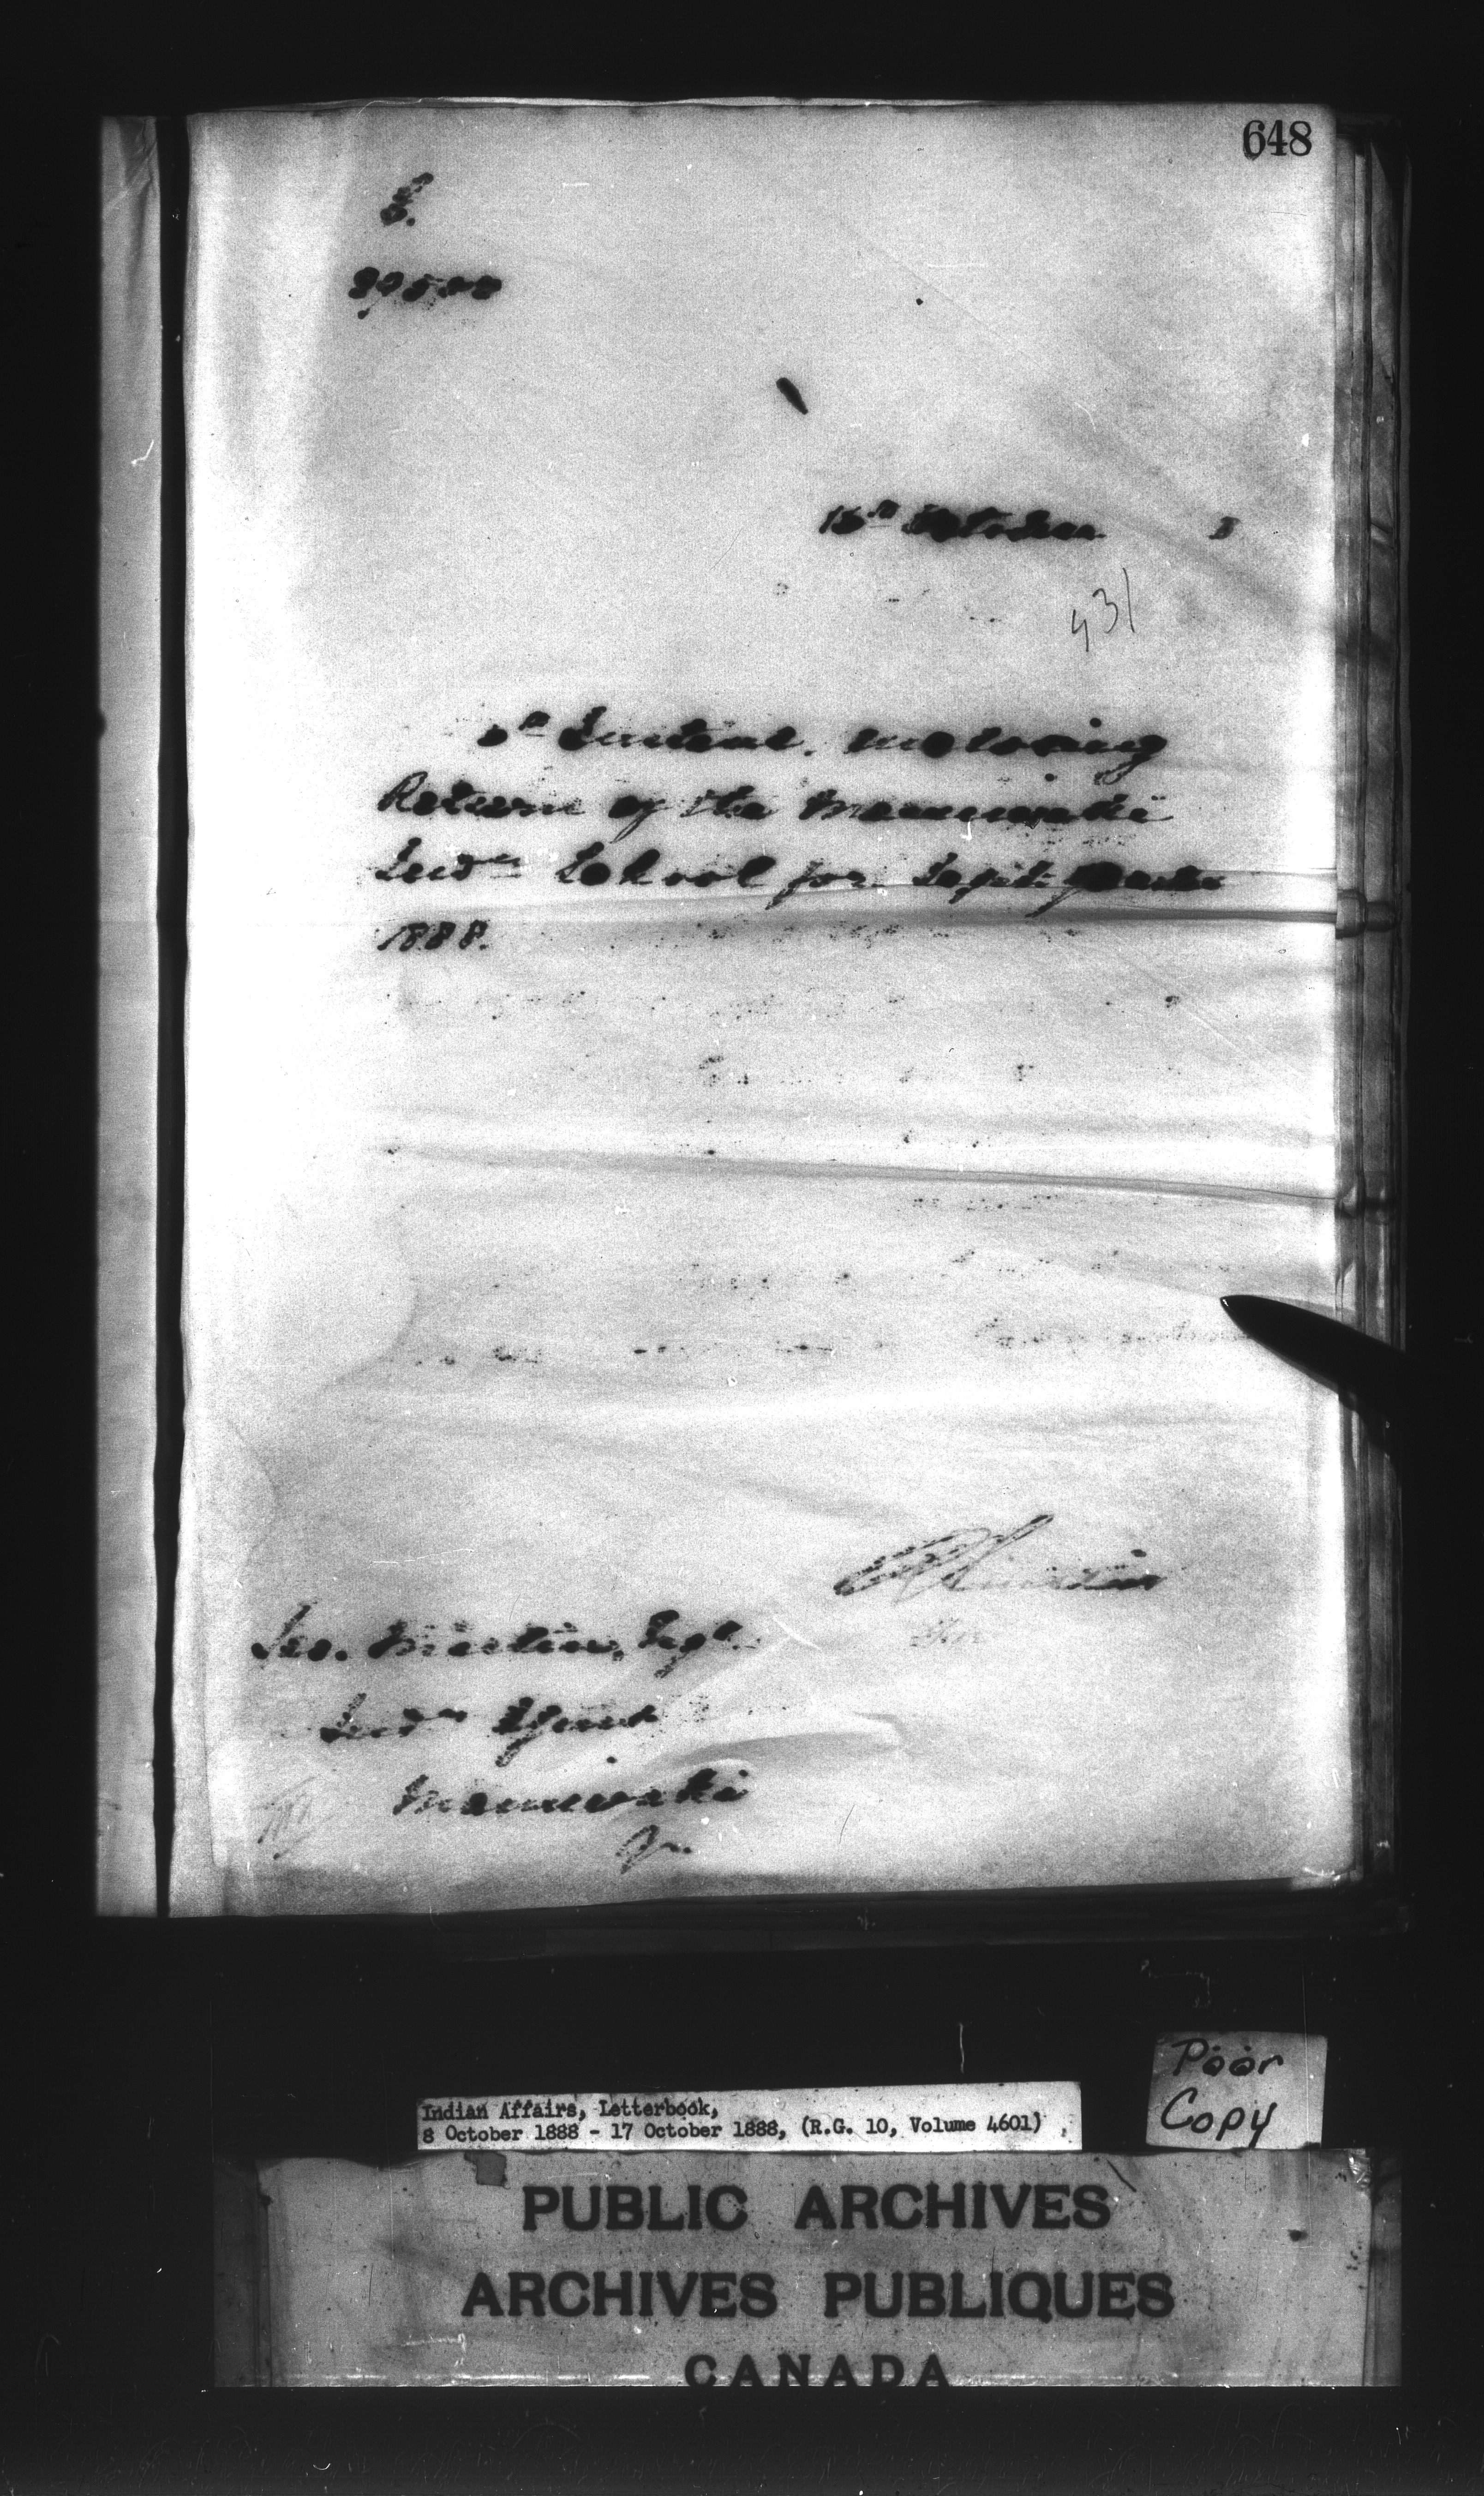 648
16th October 8
431
Instant, enclosing
Return of the Maniwaki
Indn School for Sept: Quarter
1888.
Martin, Esqr.
Indn Agent
Maniwaki
Q.
Poor
Copy
Indian Affairs, Letterbook,
8 October 1888 - 17 October 1888, (R.G. 10, Volume 4601)
PUBLIC ARCHIVES
ARCHIVES PUBLIQUES
CANADA